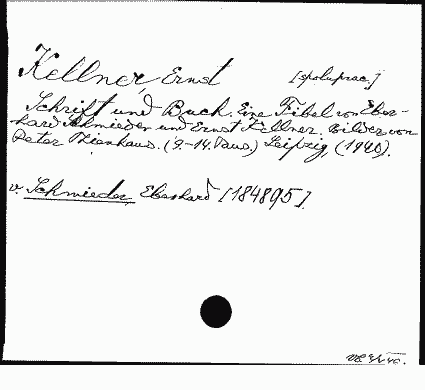 Kellner, Ernst [spoluprac.]
Schrift und Buch. Eine Fibel von Eber-
hard Schmieder und Ernst Kellner. Bilder von
Peter Thienhaus. (9.-14. Taus.) Leipzig, (1940).
v. Schmieder, Eberhard [184895].